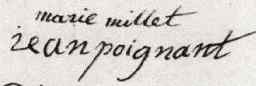 marie millet
jean poignant